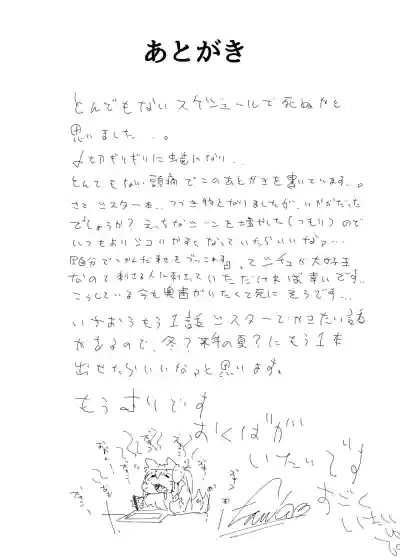 あとがき
とんでもないスケジュールで死ぬかと
思いました...。
〆切ギリギリに虫歯になり...
とんでもない頭痛でこのあとがきを書いています...。
さてシスター本..つづき物となりましたが、いかがだった
でしょうか?えっちなシーンを増やした(つもり)ので
いつもよりシコりやすくなっていたらいいなっ...
って シチュが大好き
なので刺さる人に刺さっていただければ幸いです..
こうしている今も奥歯がいたくて死にそうです...
いちおうもう1話シスターでかきたい話
があるので、冬?来年の夏?にもう1本
出せたらいいなっと思います。
もうむりです
おくばが
いたいです
すごく
いたい